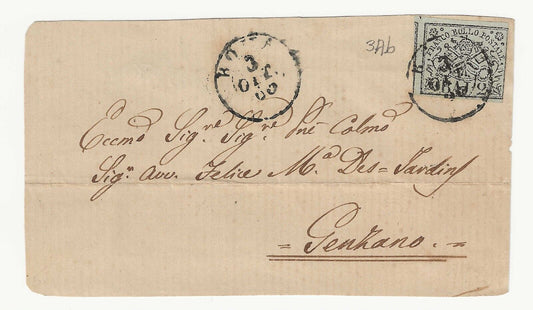 ROMA
3
OTT.
3Ab
FRANCO BOLLO POSTALE
Eccmo Sigre Sigre Pne Colmo
Sigr Avv. Felice Ma Des=Jardins
= Genzano. =